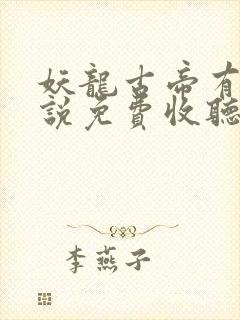 妖龍古帝有
說免費收聽
李燕子